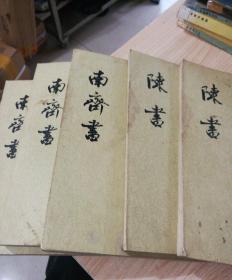 南齊書
南齊書
南齊書
陳書
陳書